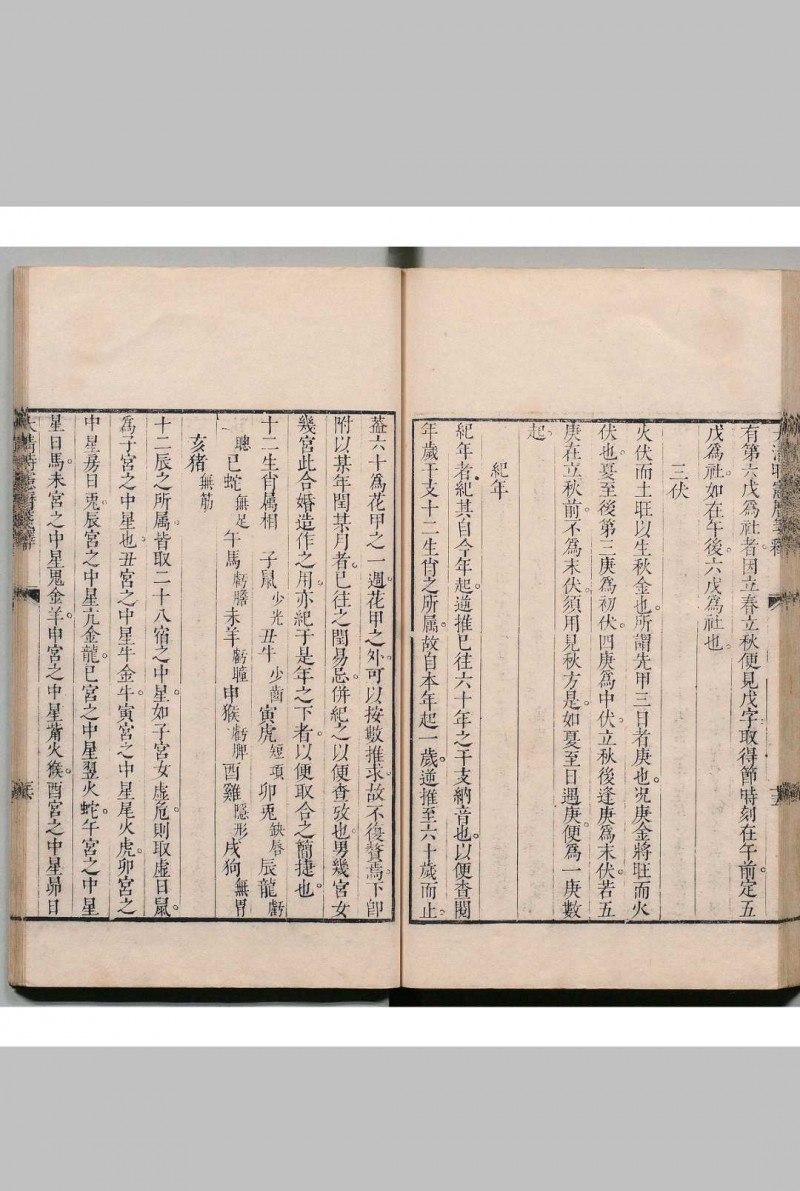 有第六戊爲社者因立春立秋便見戊字取得節時刻在午前定五
戊爲社如在午後六戊爲社也
三伏
火伏而土旺以生秋金也所謂先甲三日者庚也况庚金將旺而火
伏也夏至後第三庚爲初伏四庚爲中伏立秋後逢庚爲末伏若五
庚在立秋前不爲末伏須用見秋方是如夏至日遇庚便爲一庚數
起
紀年
紀年者紀其自今年起逆推已往六十年之干支納音也以便查閱
年歲干支十二生肖之所属故自本年起一歲逆推至六十歲而止
蓋六十爲花甲之一週花甲之外可以按數推求故不復贅焉下卽
附以某年閏某月者已往之閏易忘併紀之以便查攷也男幾宮女
幾宮此合婚造作之用亦紀于是年之下者以便取合之簡捷也
十二生肖属相 子鼠少光丑牛少齒寅虎短項卯兎缺唇辰龍虧
聰巳蛇無足午馬虧膽未羊虧瞳申猴虧脾酉雞隱形戌狗無胃
亥猪無筋
十二辰之所属皆取二十八宿之中星如子宮女虛危則取虛日鼠
爲子宮之中星也丑宮之中星牛金牛寅宮之中星尾火虎卯宮之
中星房日兎辰宮之中星亢金龍巳宮之中星翌火蛇午宮之中星
星日馬未宮之中星鬼金羊申宮之中星觜火猴酉宮之中星昴日